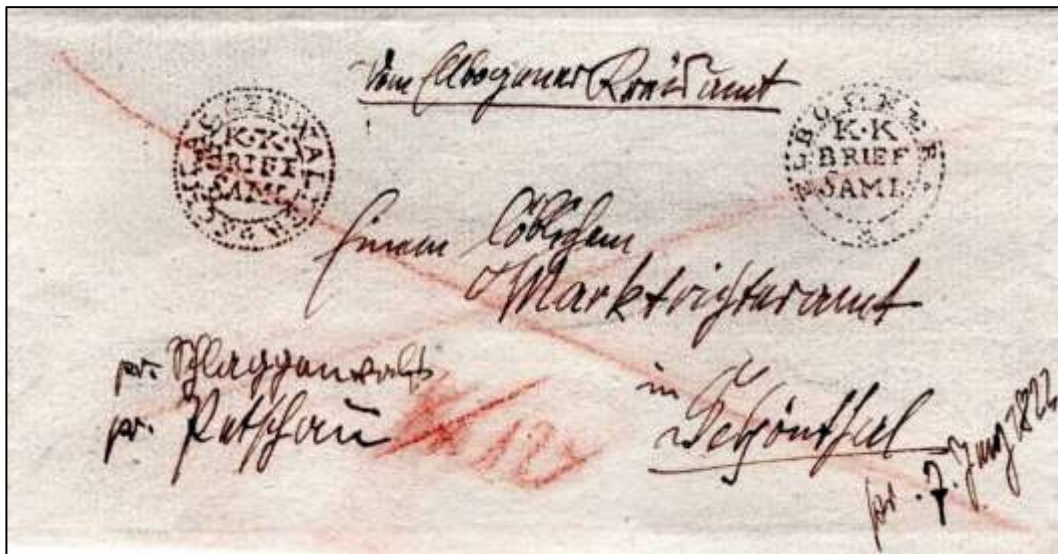 Vom Elbogener Kreisamt
K·K·
BRIEF
SAML
ELBOGNER
K·K
BRIEF
SAML
Einem Löblichem
Marktrichteramt
pr. Schlaggenwald
pr. Petschau
in
Schönthal
pr. 7. Juny 1822